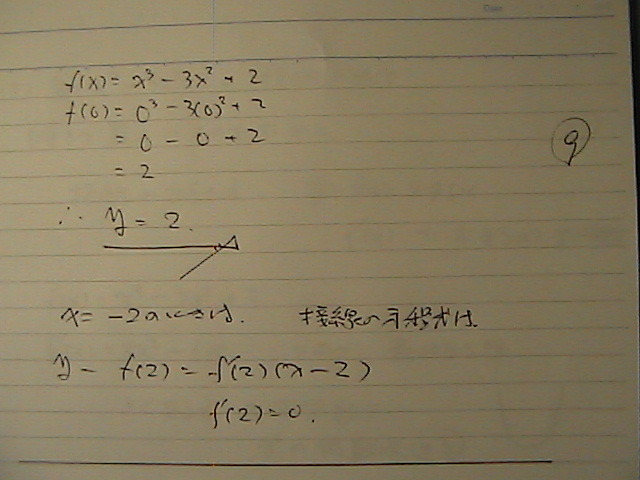 f(x) = x³ - 3x² + 2
f(0) = 0³ - 3(0)² + 2
= 0 - 0 + 2
= 2
9
∴ y = 2.
x = -2のときは. 接線の方程式は
y - f(2) = f'(2)(x - 2)
f'(2) = 0.